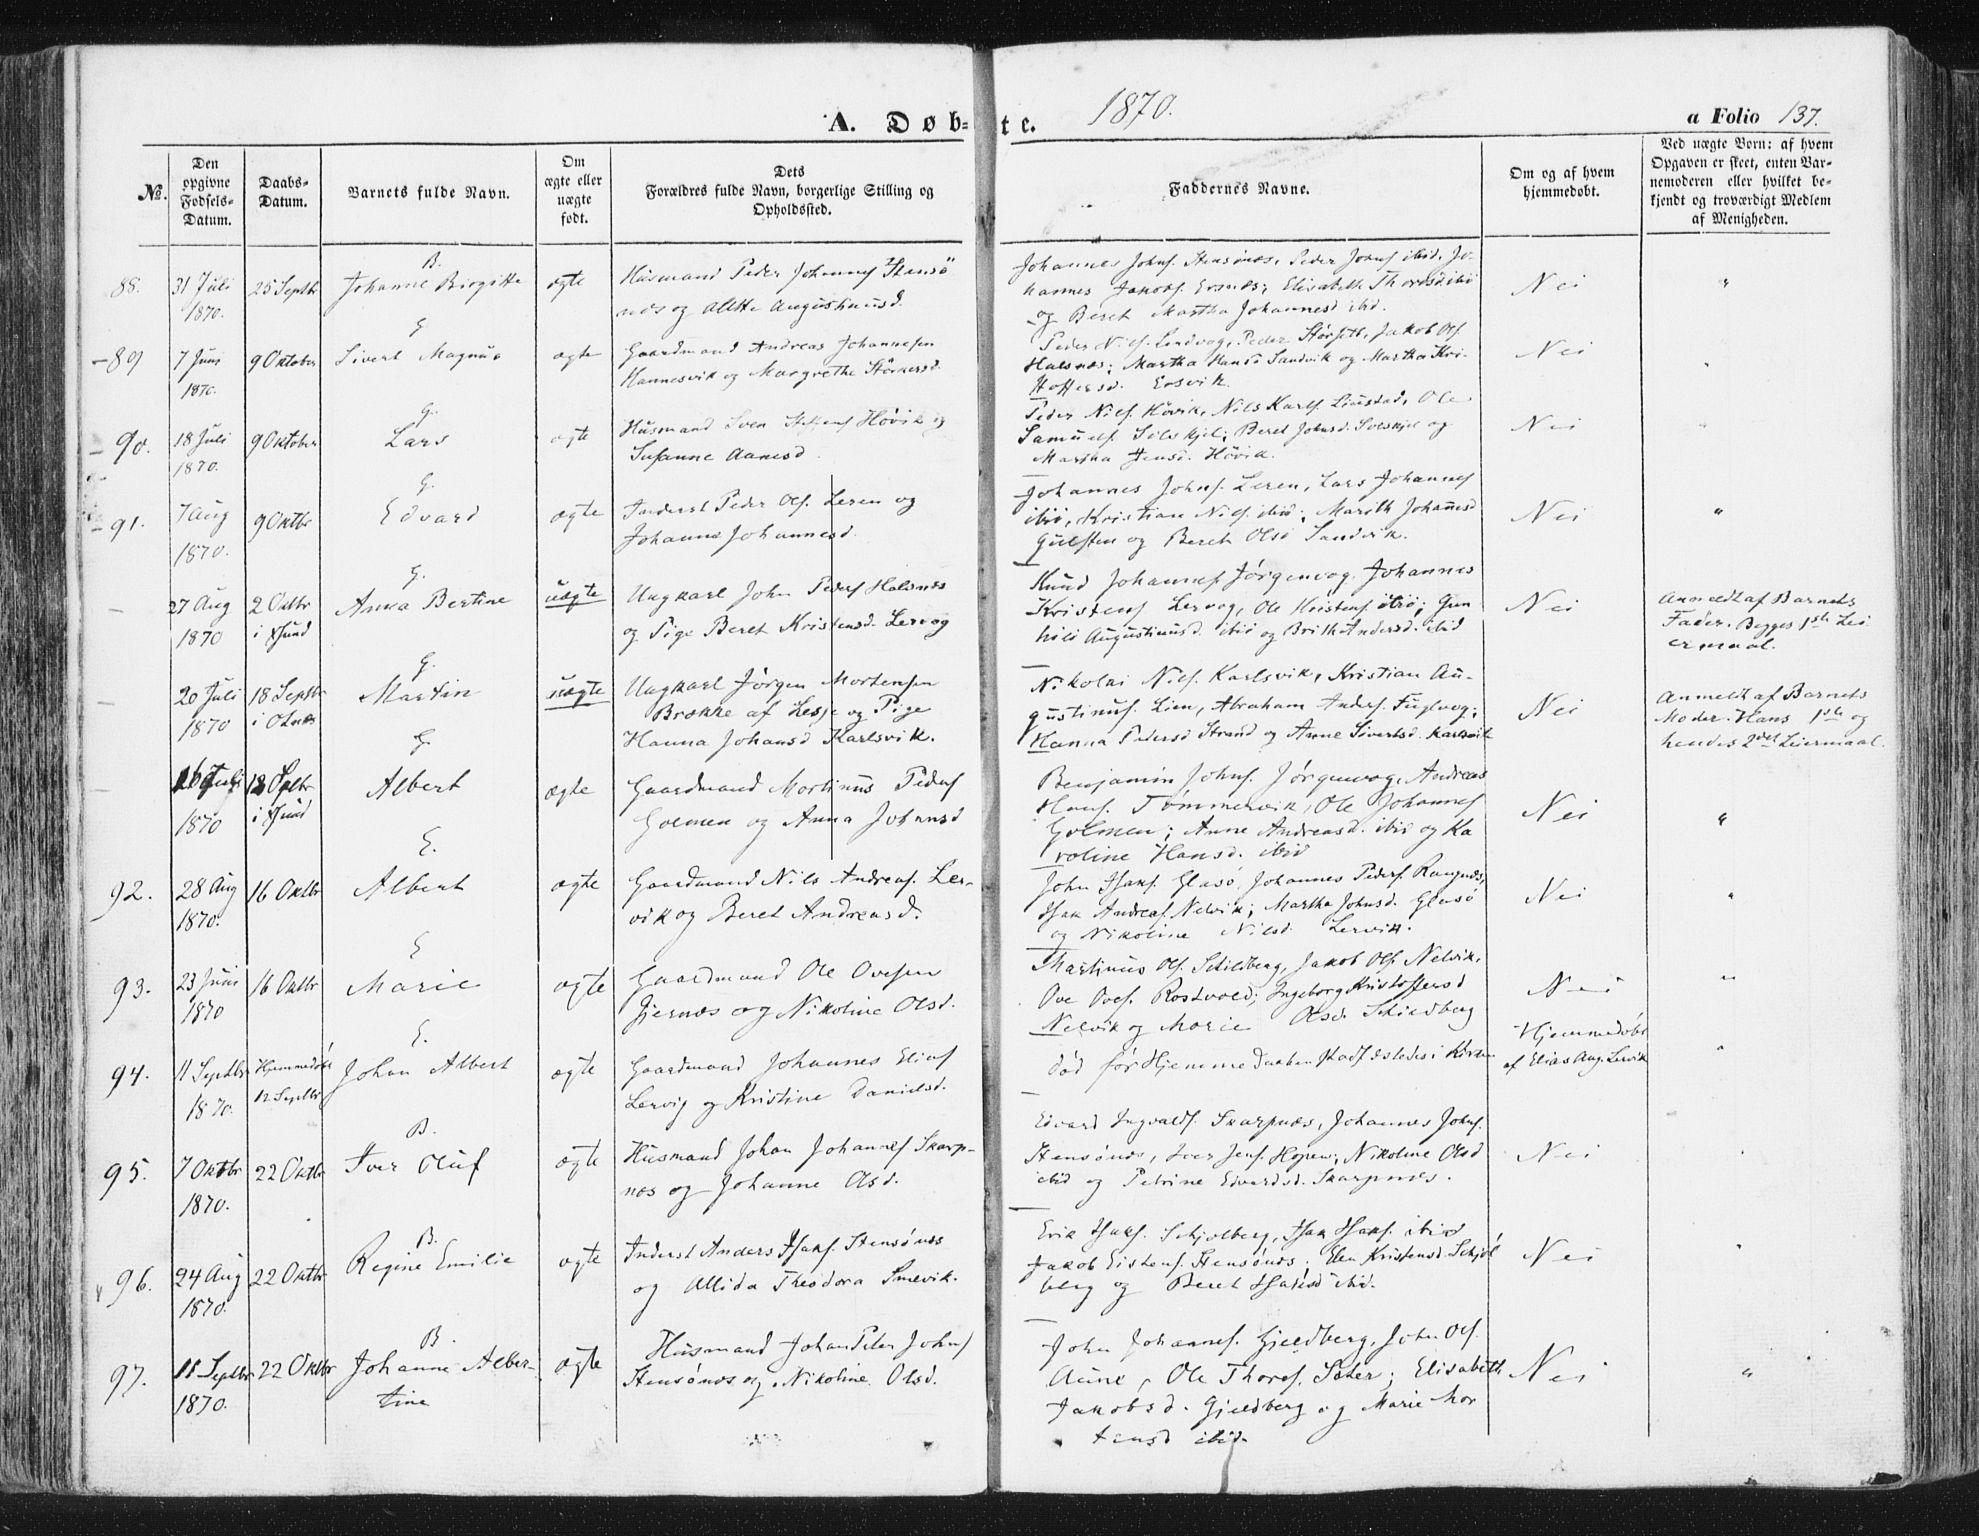 A. Døb-te. 1870. a Folio 137.
No.
Den opgivne Fødsels-Datum.
Daabs-Datum.
Barnets fulde Navn.
Om ægte eller uægte født.
Dets Forældres fulde Navn, borgerlige Stilling og Opholdssted.
Faddernes Navne.
Om og af hvem hjemmedøbt.
Ved uægte Børn: af hvem Opgaven er skeet, enten Barnemoderen eller hvilket bekjendt og troværdigt Medlem af Menigheden.
88. 31 Juli 1870. 25 Septbr
B.
Johanne Birgitte
ægte
Husmand Peder Johannes Stensö
næs og Alette Augustinusd.
Johannes Johns. Stensönes, Peder Johns ibid, Jo-
hannes Jakobs. Ersnæs; Elisabeth Thoresd ibid
og Beret Martha Johannesd ibid.
Nei
"
89 7 Juni 1870. 9 Oktober
G
Sivert Magnus
ægte
Gaardmand Andreas Johannesen
Hannesvik og Margrethe Störkersd.
Peder Nils. Lervog, Peder Störsett, Jakob Ols.
Halsnæs; Martha Hansd Sandvik og Martha Kri-
stoffersd. Ersvik.
Nei
90. 18 Juli 1870. 9 Oktober
G.
Lars
ægte
Husmand Sven Hövik og
Susanne Aanesd.
Peder Nils. Hövik, Nils Karls. Liustad, Ole
Samuels. Solskjel; Beret Johnsd. Solskjel og
Martha Jensd. Hövik.
Nei
91. 7 Aug 1870. 9 Oktbr
G.
Edvard
ægte
Inderst Peder Ols. Leren og
Johanne Johannesd.
Johannes Johns. Leren, Lars Johannes
ibid, Kristian Nils. ibid; Marith Johannesd
Gulsten og Beret Olsd Sandvik.
Nei
"
27 Aug 1870 2 Oktbr i Sund
G.
Anna Bertine
uægte
Ungkarl John Peders Halsnæs
og Pige Beret Kristensd. Lervog
Knud Johannes. Jörgenvog, Johannes
Kristens Lervog, Ole Kristens ibid; Gun
hild Augustinusd. ibid og Brith Andersd. ibid
Nei
Anmeldt af Barnets
Fader. Begges 1ste Lei
ermaal.
20 Juli 1870 18 Septbr i Otnæs
G.
Martin
uægte
Ungkarl Jörgen Mortensen
Brække af Lesje og Pige
Hanna Johansd Karlsvik.
Nikolai Nils. Karlsvik, Kristian Au-
gustinus. Lien, Abraham Anders. Fuglvog;
Hanna Pedersd Strand og Anne Sivertsd. Karlsvik
Nei
Anmeldt af Barnets
Moder. Hans 1ste og
hendes 2det Leiermaal.
16 Juli 1870 18 Sptbr i Sund
G.
Albert
ægte
Gaardmand Martinus Peders
Golmen og Anna Johansd
Benjamin Johns. Jörgenvog, Andreas
Hans. Tömmervik, Ole Johannes
Golmen; Anne Andreasd. ibid og Ka
roline Hansd. ibid
Nei
"
92. 28 Aug 1870. 16 Oktbr
E.
Albert
ægte
Gaardmand Nils Andreas. Ler-
vik og Beret Andreasd.
John Isaks. Glasö, Johannes Peders. Rangnæs,
Isak Andreas. Nelvik; Martha Johnsd. Glasö
og Nikoline Nilsd Lervik.
Nei
"
93. 23 Juni 1870 16 Oktbr
E
Marie
ægte
Gaardmand Ole Ovesen
Gjernæs og Nikoline Olsd.
Martinus Ols. Skildberg, Jakob Ols. Nelvik,
Ove Oves. Rostvold; Ingeborg Kristoffersd
Nelvik og Marie Olsd. Skildberg
Nei
"
94. 11 Septbr 1870. Hjemmedöbt 12 Septbr
E.
Johan Albert
ægte
Gaardmand Johannes Elias
Lervig og Kristine Danielsd.
död för Hjemmedaaben stadfæstedes i Kirken
Hjemmedöbt
af Elias Aug. Lervik
"
95. 7 Oktbr 1870. 22 Oktbr
B.
Iver Oluf
ægte
Husmand Johan Johannes Skarp-
næs og Johanne Olsd.
Edvard Ingvalds. Skarpnæs, Johannes Johns.
Stensönæs, Iver Jens. Hopen; Nikoline Olsd
ibid og Petrine Edvardsd. Skarpnæs.
Nei
96. 24 Aug 1870. 22 Oktbr
B.
Regine Emilie
ægte
Inderst Anders Isaks. Stensönæs
og Allida Theodora Smevik.
Erik Isaks. Schjolberg, Isak Isaks. ibid
Jakob Eistens. Stensönæs; Elen Kristensd. Schjöl
berg og Beret Isaksd ibid.
Nei
"
97. 11 Septbr 1870. 22 Oktbr
B.
Johanne Alber-
tine
ægte
Husmand Johan Peter Johns
Stensönæs og Nikoline Olsd.
John Johannes. Gjeldberg, John Ols.
Aune, Ole Thores. Sæter; Elisabeth
Jakobsd. Gjeldberg og Marie Mor
tensd ibid.
Nei
"